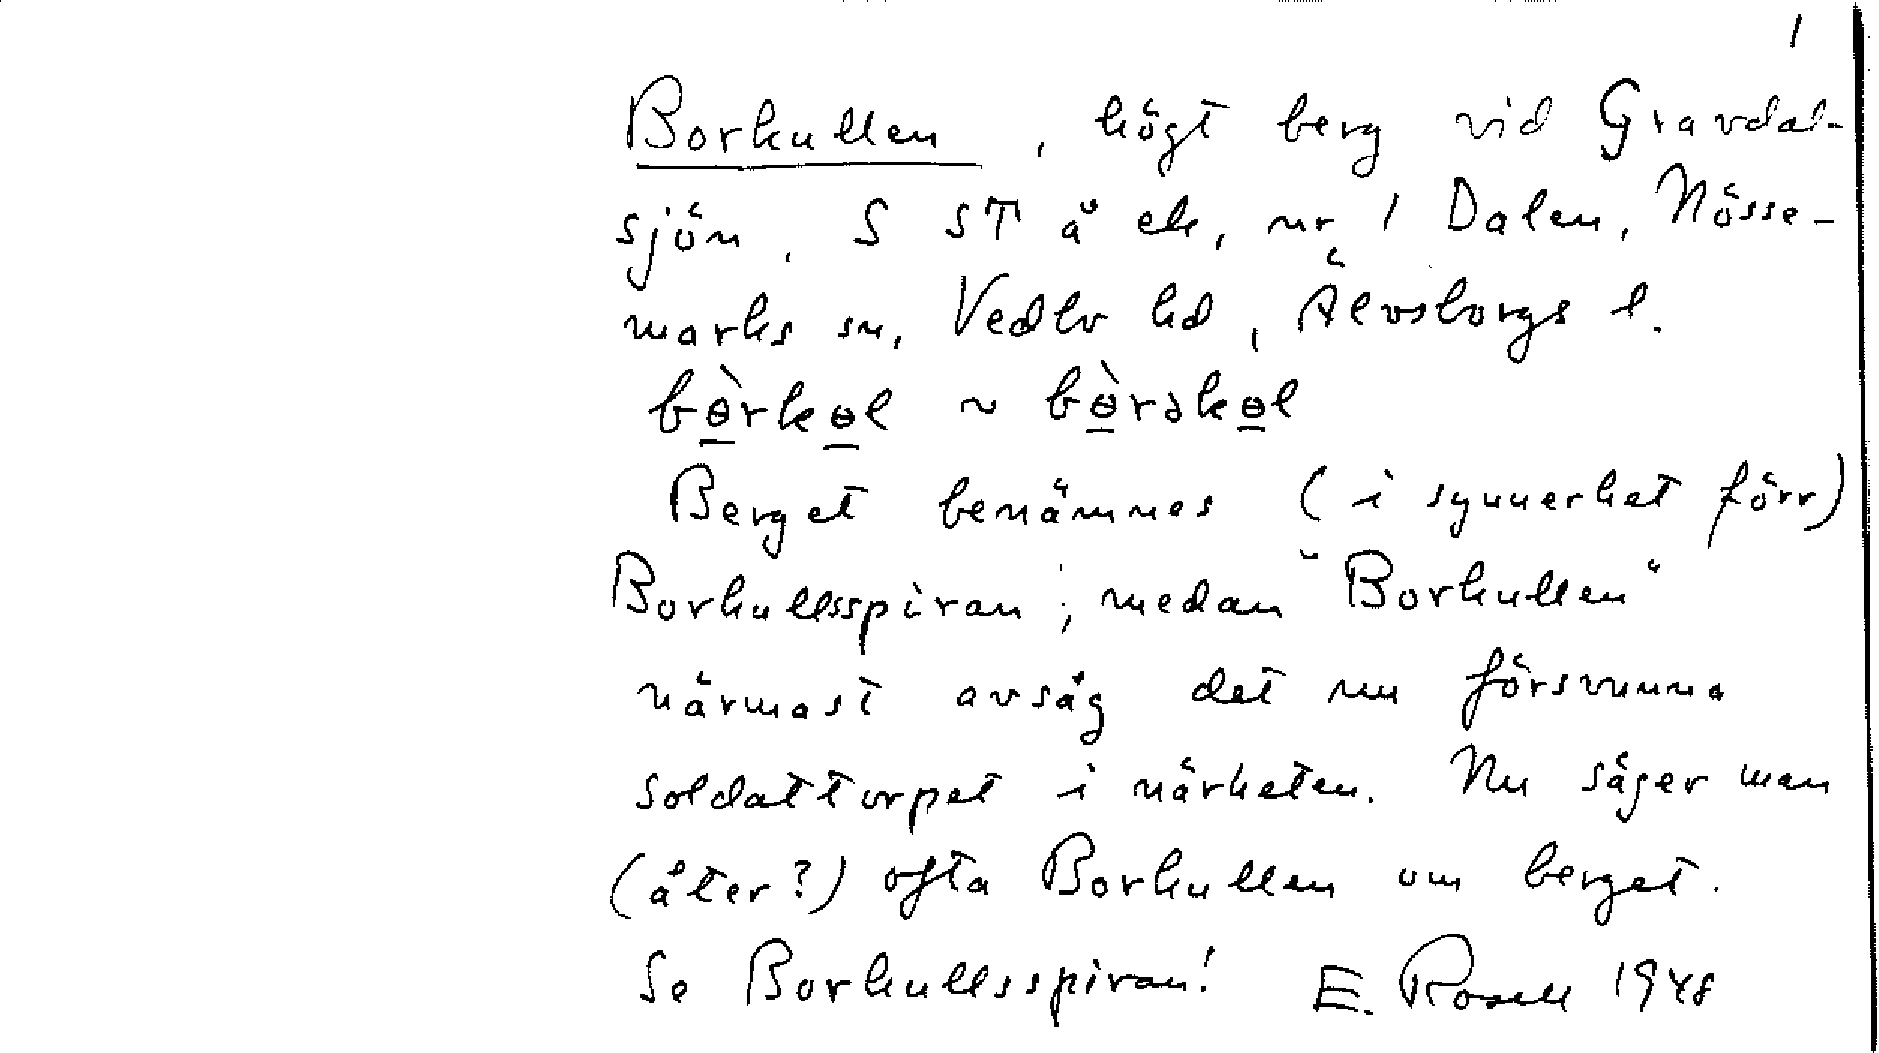 1
Borkullen, högt berg vid Gravdal-
sjön, S ST å ek, nr 1 Dalen, Nösse-
marks sn, Vedbo hd, Älvsborgs l.
bɵ̀rkɵl ~ bɵ̀rəkɵl
Berget benämnes (i synnerhet förr)
Borkullsspiran; medan "Borkullen"
närmast avsåg det nu försvunna
soldattorpet i närheten. Nu säger man
(åter?) ofta Borkullen om berget.
Se Borkullsspiran! E. Rosell 1948